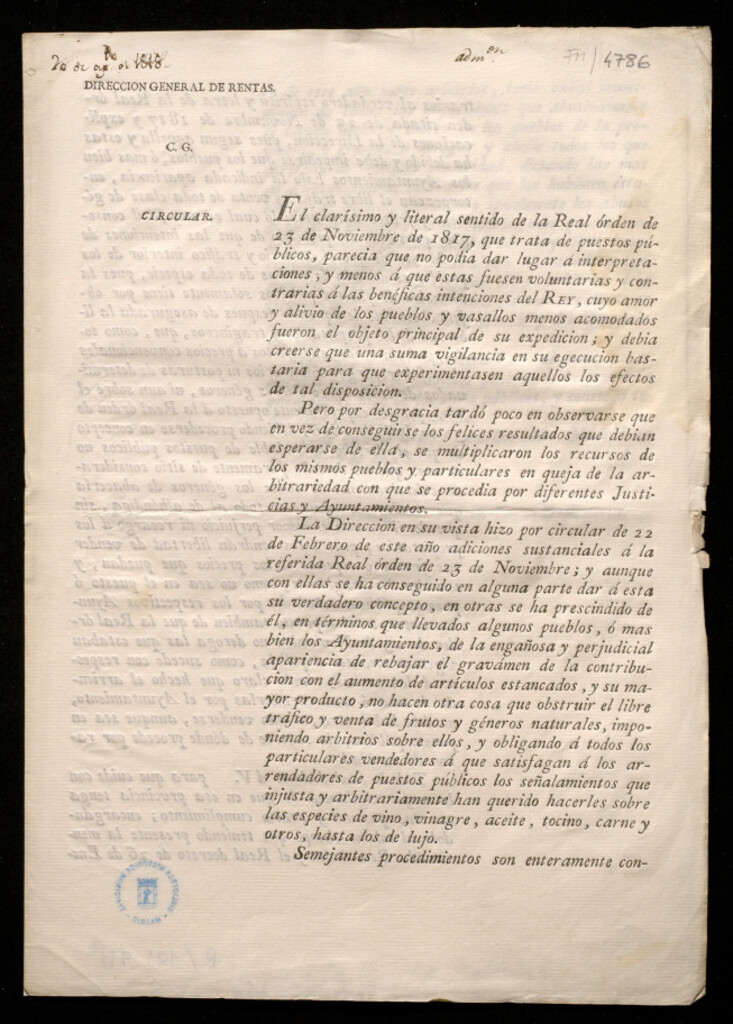 20 de ag.to de 1818
adm.on
FM/4786
DIRECCION GENERAL DE RENTAS.
C. G.
CIRCULAR.
El clarísimo y literal sentido de la Real órden de
23 de Noviembre de 1817, que trata de puestos pú-
blicos, parecia que no podia dar lugar á interpreta-
ciones, y menos á que estas fuesen voluntarias y con-
trarias á las benéficas intenciones del REY, cuyo amor
y alivio de los pueblos y vasallos menos acomodados
fueron el objeto principal de su expedicion; y debia
creerse que una suma vigilancia en su egecucion bas-
taria para que experimentasen aquellos los efectos
de tal disposicion.
Pero por desgracia tardó poco en observarse que
en vez de conseguirse los felices resultados que debian
esperarse de ella, se multiplicaron los recursos de
los mismos pueblos y particulares en queja de la ar-
bitrariedad con que se procedia por diferentes Justi-
cias y Ayuntamientos.
La Direccion en su vista hizo por circular de 22
de Febrero de este año adiciones sustanciales á la
referida Real órden de 23 de Noviembre; y aunque
con ellas se ha conseguido en alguna parte dar á esta
su verdadero concepto, en otras se ha prescindido de
él, en términos que llevados algunos pueblos, ó mas
bien los Ayuntamientos, de la engañosa y perjudicial
apariencia de rebajar el gravámen de la contribu-
cion con el aumento de artículos estancados, y su ma-
yor producto, no hacen otra cosa que obstruir el libre
tráfico y venta de frutos y géneros naturales, impo-
niendo arbitrios sobre ellos, y obligando á todos los
particulares vendedores á que satisfagan á los ar-
rendadores de puestos públicos los señalamientos que
injusta y arbitrariamente han querido hacerles sobre
las especies de vino, vinagre, aceite, tocino, carne y
otros, hasta los de lujo.
Semejantes procedimientos son enteramente con-